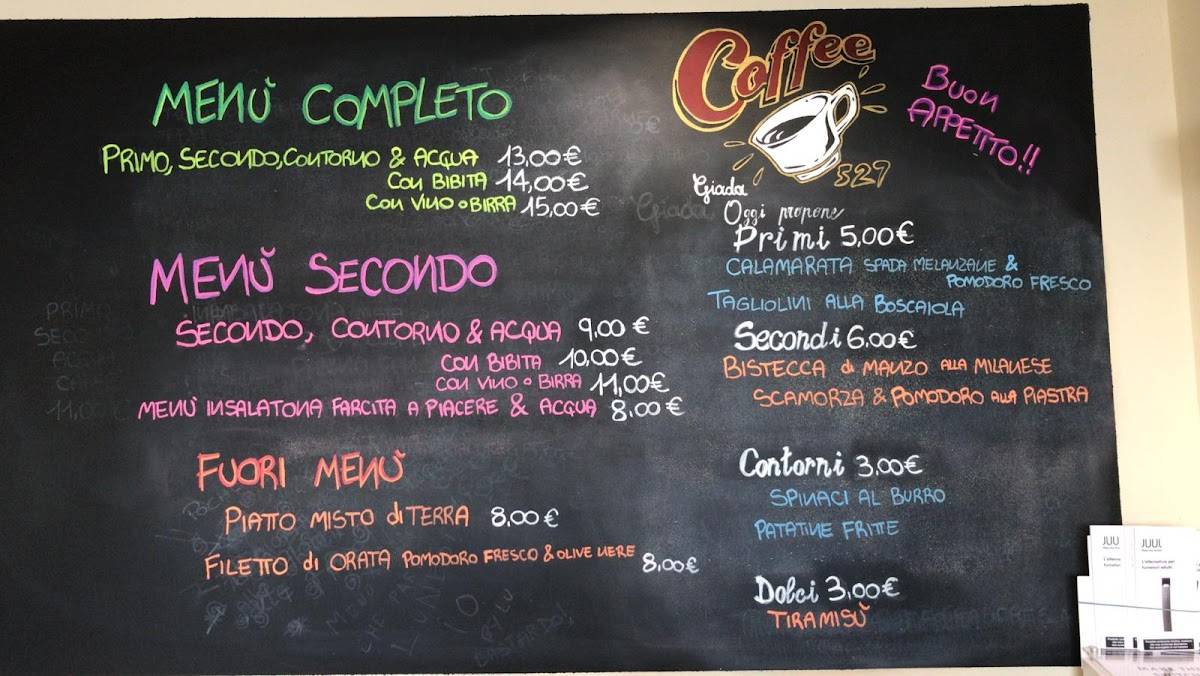 MENÙ COMPLETO
PRIMO, SECONDO, CONTORNO & ACQUA 13,00€
CON BIBITA 14,00€
CON VINO O BIRRA 15,00€
MENÙ SECONDO
SECONDO, CONTORNO & ACQUA 9,00€
CON BIBITA 10,00€
CON VINO O BIRRA 11,00€
MENÙ INSALATONA FARCITA A PIACERE & ACQUA 8,00€
FUORI MENÙ
PIATTO MISTO di TERRA 8,00€
FILETTO di ORATA POMODORO FRESCO & OLIVE NERE 8,00€
Coffee
527
BUON
APPETITO.!!
Giada
Oggi propone
Primi 5,00€
CALAMARATA SPADA MELANZANE &
POMODORO FRESCO
TAGLIOLINI ALLA BOSCAIOLA
Secondi 6,00€
BISTECCA di MANZO ALLA MILANESE
SCAMORZA & POMODORO ALLA PIASTRA
Contorni 3,00€
SPINACI AL BURRO
PATATINE FRITTE
Dolci 3,00€
TIRAMISÙ
JUU
JUUL
L'alternativa per
fumatori adulti.